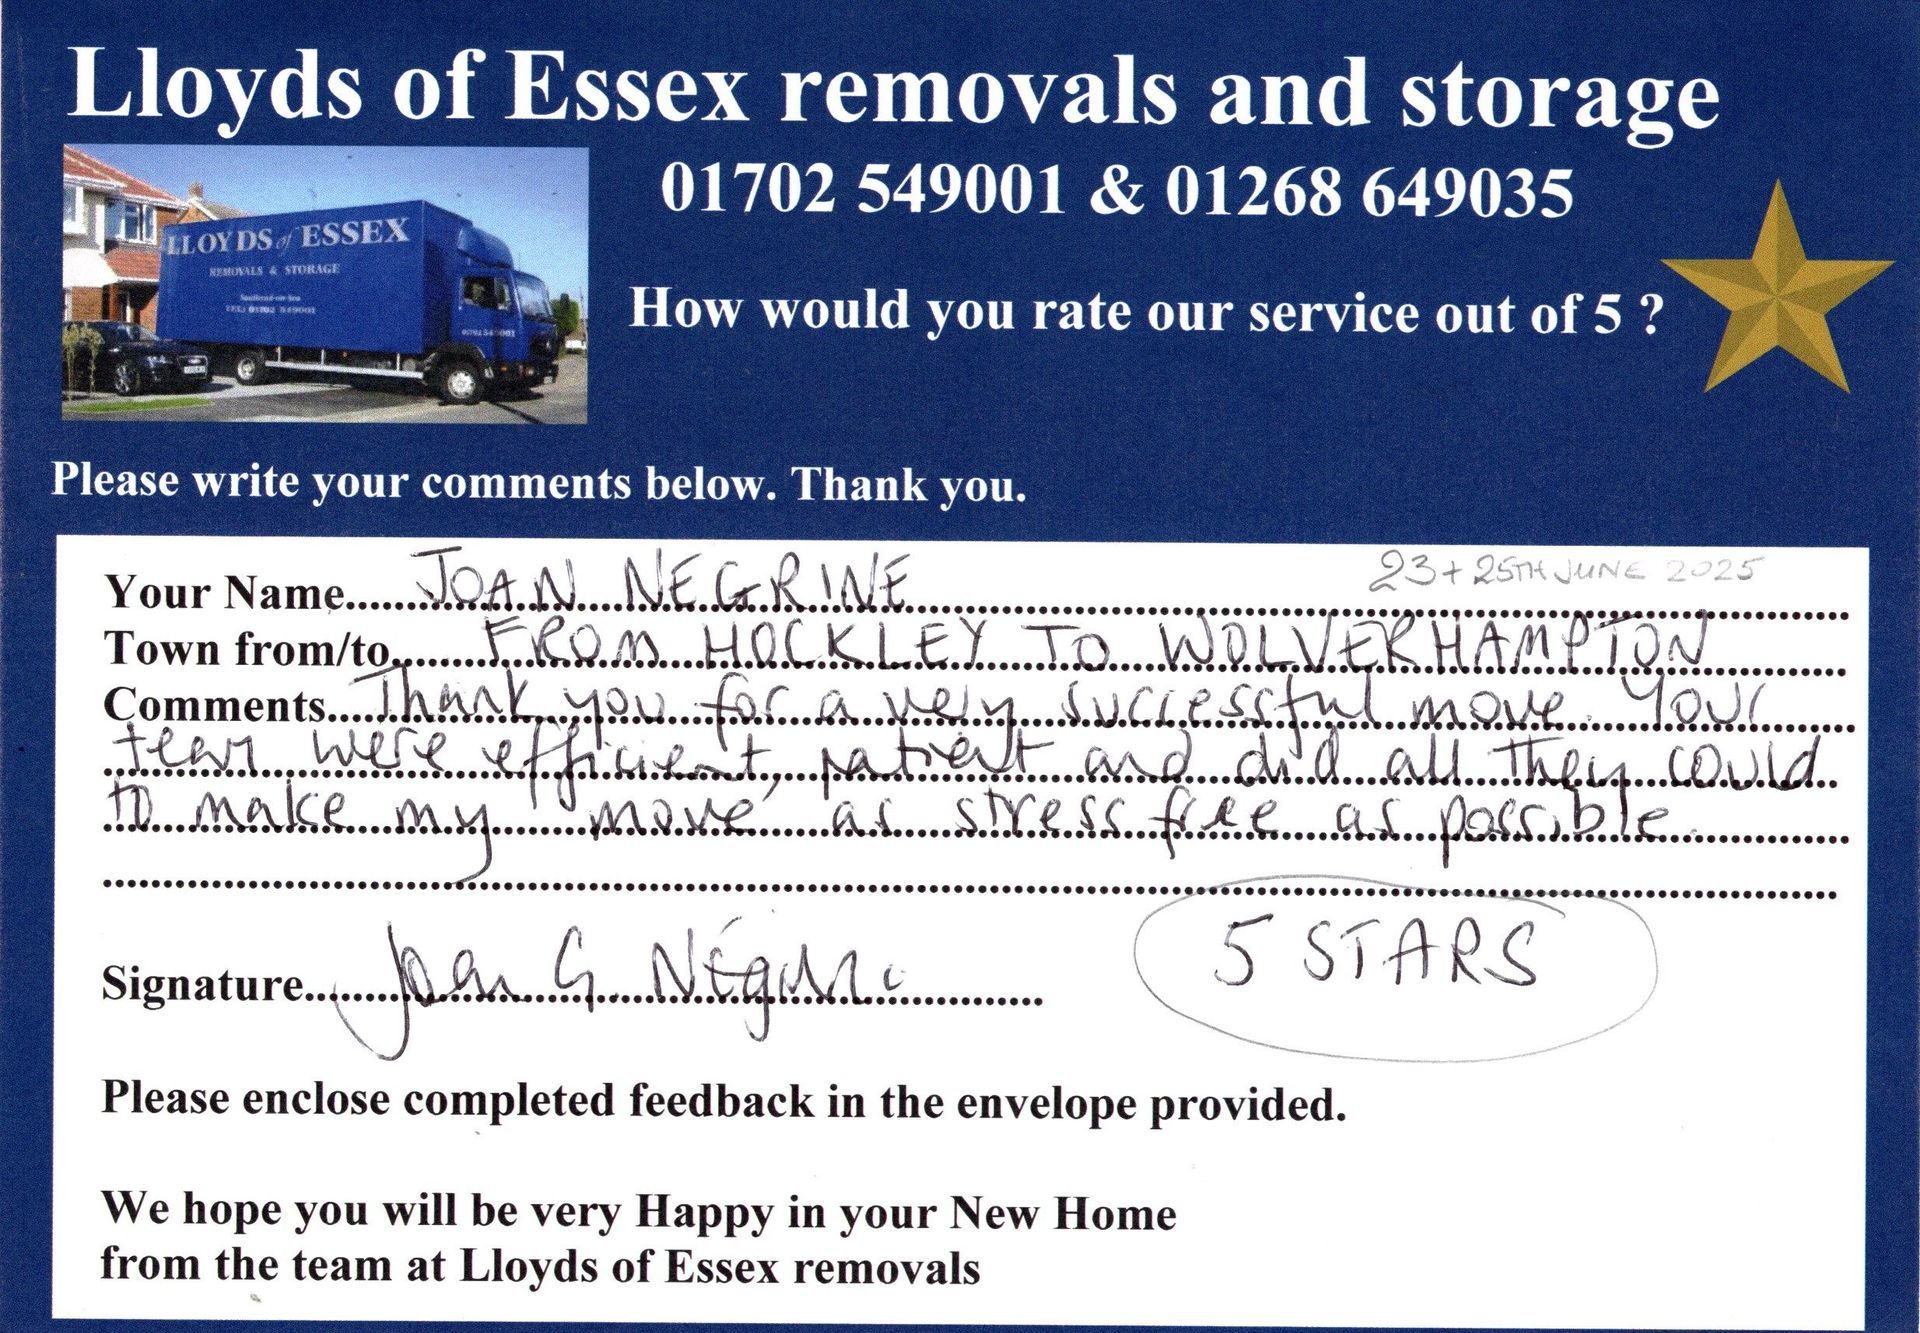 Lloyds of Essex removals and storage
01702 549001 & 01268 649035
LLOYDS of ESSEX
REMOVALS & STORAGE
Southend-on-Sea
TEL: 01702 549001
01702 549001
How would you rate our service out of 5 ?
Please write your comments below. Thank you.
23 + 25TH JUNE 2025
Your Name.....JOAN NEGRINE
Town from/to.....FROM HOCKLEY TO WOLVERHAMPTON
Comments....Thank you for a very successful move. Your
team were efficient, patient and did all they could
to make my move as stress free as possible.
Signature.....Joan G. Negrine
5 STARS
Please enclose completed feedback in the envelope provided.
We hope you will be very Happy in your New Home
from the team at Lloyds of Essex removals